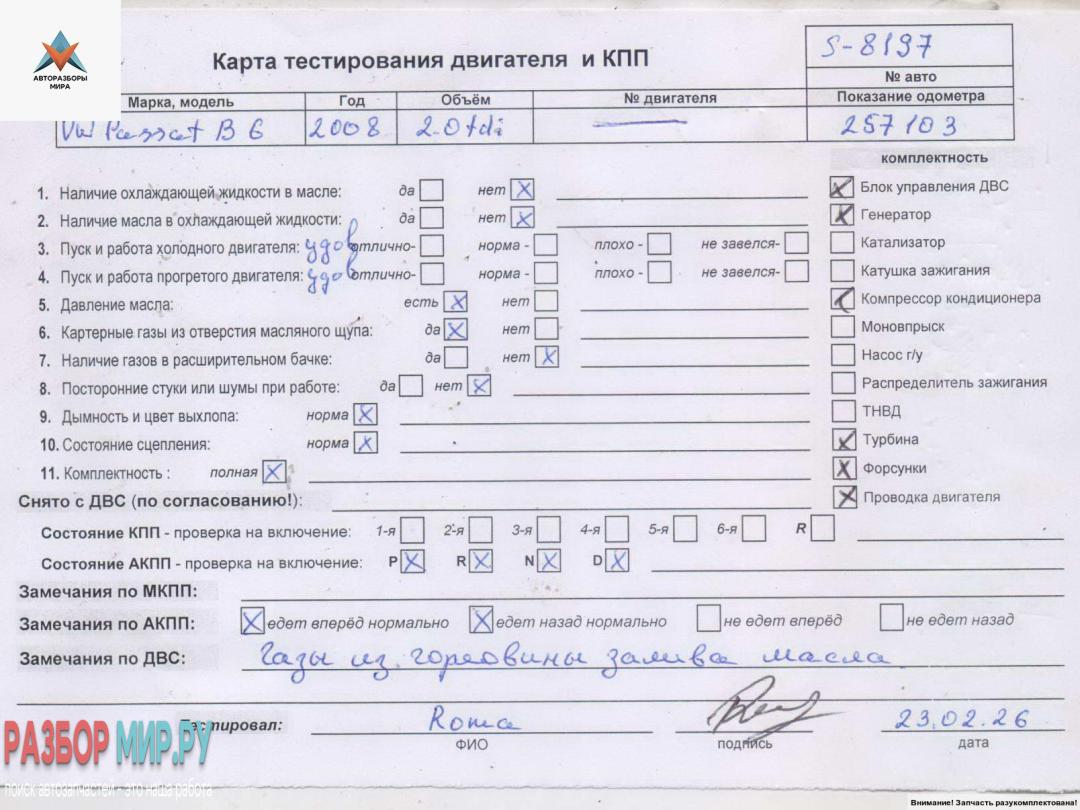 АВТОРАЗБОРЫ
МИРА
Карта тестирования двигателя и КПП
S-8197
№ авто
Марка, модель Год Объём № двигателя Показание одометра
VW Passat B 6 2008 2.0tdi — 257103
комплектность
1. Наличие охлаждающей жидкости в масле: да нет
Блок управления ДВС
2. Наличие масла в охлаждающей жидкости: да нет
Генератор
3. Пуск и работа холодного двигателя: удов отлично- норма - плохо- не завелся-
Катализатор
4. Пуск и работа прогретого двигателя: удов отлично- норма - плохо- не завелся-
Катушка зажигания
5. Давление масла: есть нет
Компрессор кондиционера
6. Картерные газы из отверстия масляного щупа: да нет
Моновпрыск
7. Наличие газов в расширительном бачке: да нет
Насос г/у
8. Посторонние стуки или шумы при работе: да нет
Распределитель зажигания
9. Дымность и цвет выхлопа: норма
ТНВД
10. Состояние сцепления: норма
Турбина
11. Комплектность : полная
Форсунки
Снято с ДВС (по согласованию!):
Проводка двигателя
Состояние КПП - проверка на включение: 1-я 2-я 3-я 4-я 5-я 6-я R
Состояние АКПП - проверка на включение: P R N D
Замечания по МКПП:
Замечания по АКПП: едет вперёд нормально едет назад нормально не едет вперёд не едет назад
Замечания по ДВС: Газы из горловины залива масла
Тестировал: Roma 23.02.26
ФИО подпись дата
РАЗБОР МИР.РУ
поиск автозапчастей - это наша работа
Внимание! Запчасть разукомплектована!